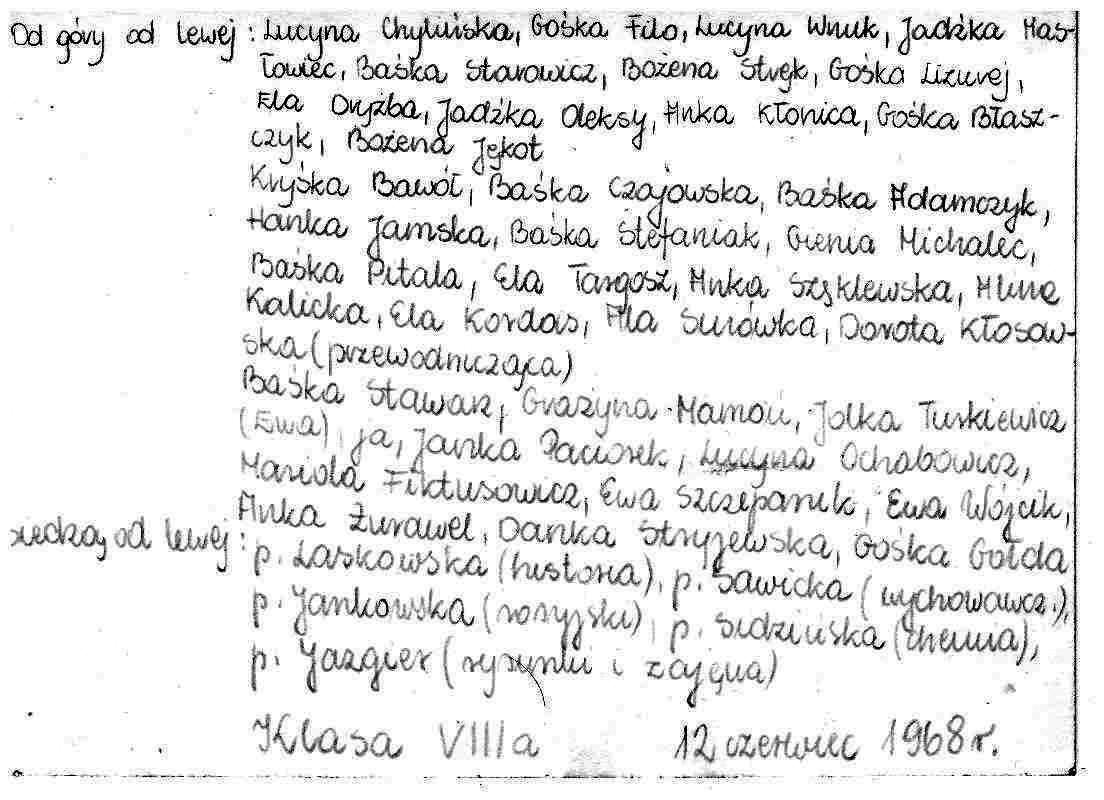 Od góry od lewej: Lucyna Chylińska, Gośka Filo, Lucyna Wnuk, Jadźka Mas-
łowiec, Baśka Starowicz, Bożena Stręk, Gośka Lizurej,
Ela Oryżba, Jadźka Oleksy, Anka Kłonica, Gośka Błasz-
czyk, Bożena Jękot
Kryśka Bawół, Baśka Czajowska, Baśka Adamczyk,
Hanka Jamska, Baśka Stefaniak, Gienia Michalec,
Baśka Pitala, Ela Targosz, Anka Szęklewska, Alina
Kalicka, Ela Kordas, Ala Surówka, Dorota Kłosow-
ska (przewodnicząca)
Baśka Stawarz, Grażyna Mamoń, Jolka Turkiewicz
(Ewa), ja, Janka Paciorek, Lucyna Ochabowicz,
Mariola Fiktusowicz, Ewa Szczepanik, Ewa Wójcik,
Anka Żurawel, Danka Stryjewska, Gośka Gołda
siedzą od lewej: p. Laskowska (historia), p. Sawicka (wychowawcz.),
p. Jankowska (rosyjski), p. Sidzińska (chemia),
p. Jazgier (rysunki i zajęcia)
Klasa VIIIa 12 czerwiec 1968 r.